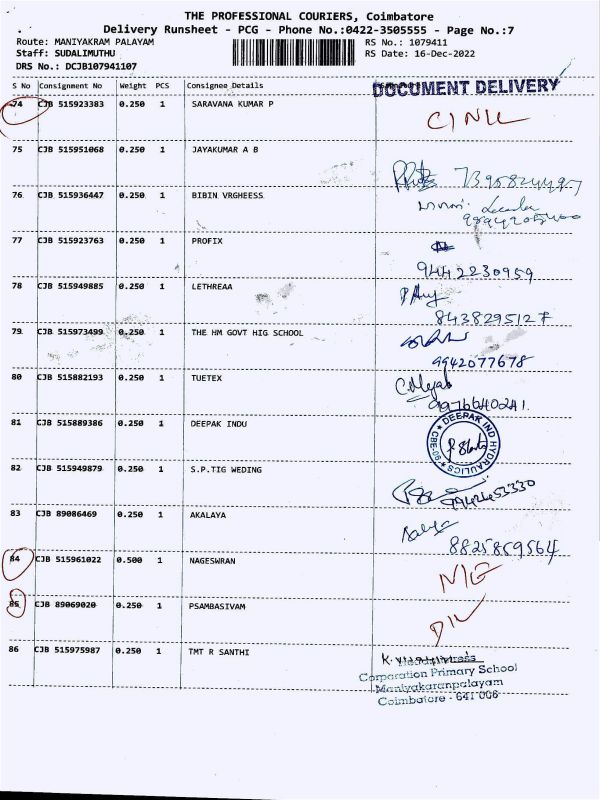 THE PROFESSIONAL COURIERS, Coimbatore
Delivery Runsheet - PCG - Phone No.:0422-3505555 - Page No.:7
Route: MANIYAKRAM PALAYAM
RS No.: 1079411
Staff: SUDALIMUTHU
RS Date: 16-Dec-2022
DRS No.: DCJB107941107
S No Consignment No Weight PCS Consignee Details
DOCUMENT DELIVERY
74 CJB 515923383 0.250 1 SARAVANA KUMAR P
75 CJB 515951068 0.250 1 JAYAKUMAR A B
76 CJB 515936447 0.250 1 BIBIN VRGHEESS
77 CJB 515923763 0.250 1 PROFIX
9442230959
78 CJB 515949885 0.250 1 LETHREAA
8438295127
79 CJB 515973499 0.250 1 THE HM GOVT HIG SCHOOL
9942077678
80 CJB 515882193 0.250 1 TUETEX
9976640241.
81 CJB 515889386 0.250 1 DEEPAK INDU
DEEPAK IND HYDRAULICS CBE-
82 CJB 515949879 0.250 1 S.P.TIG WEDING
83 CJB 89086469 0.250 1 AKALAYA
8825859564
84 CJB 515961022 0.500 1 NAGESWRAN
85 CJB 89069020 0.250 1 PSAMBASIVAM
86 CJB 515975987 0.250 1 TMT R SANTHI
Headmistress
Corporation Primary School
Maniyakaranpalayam
Coimbatore - 641 006